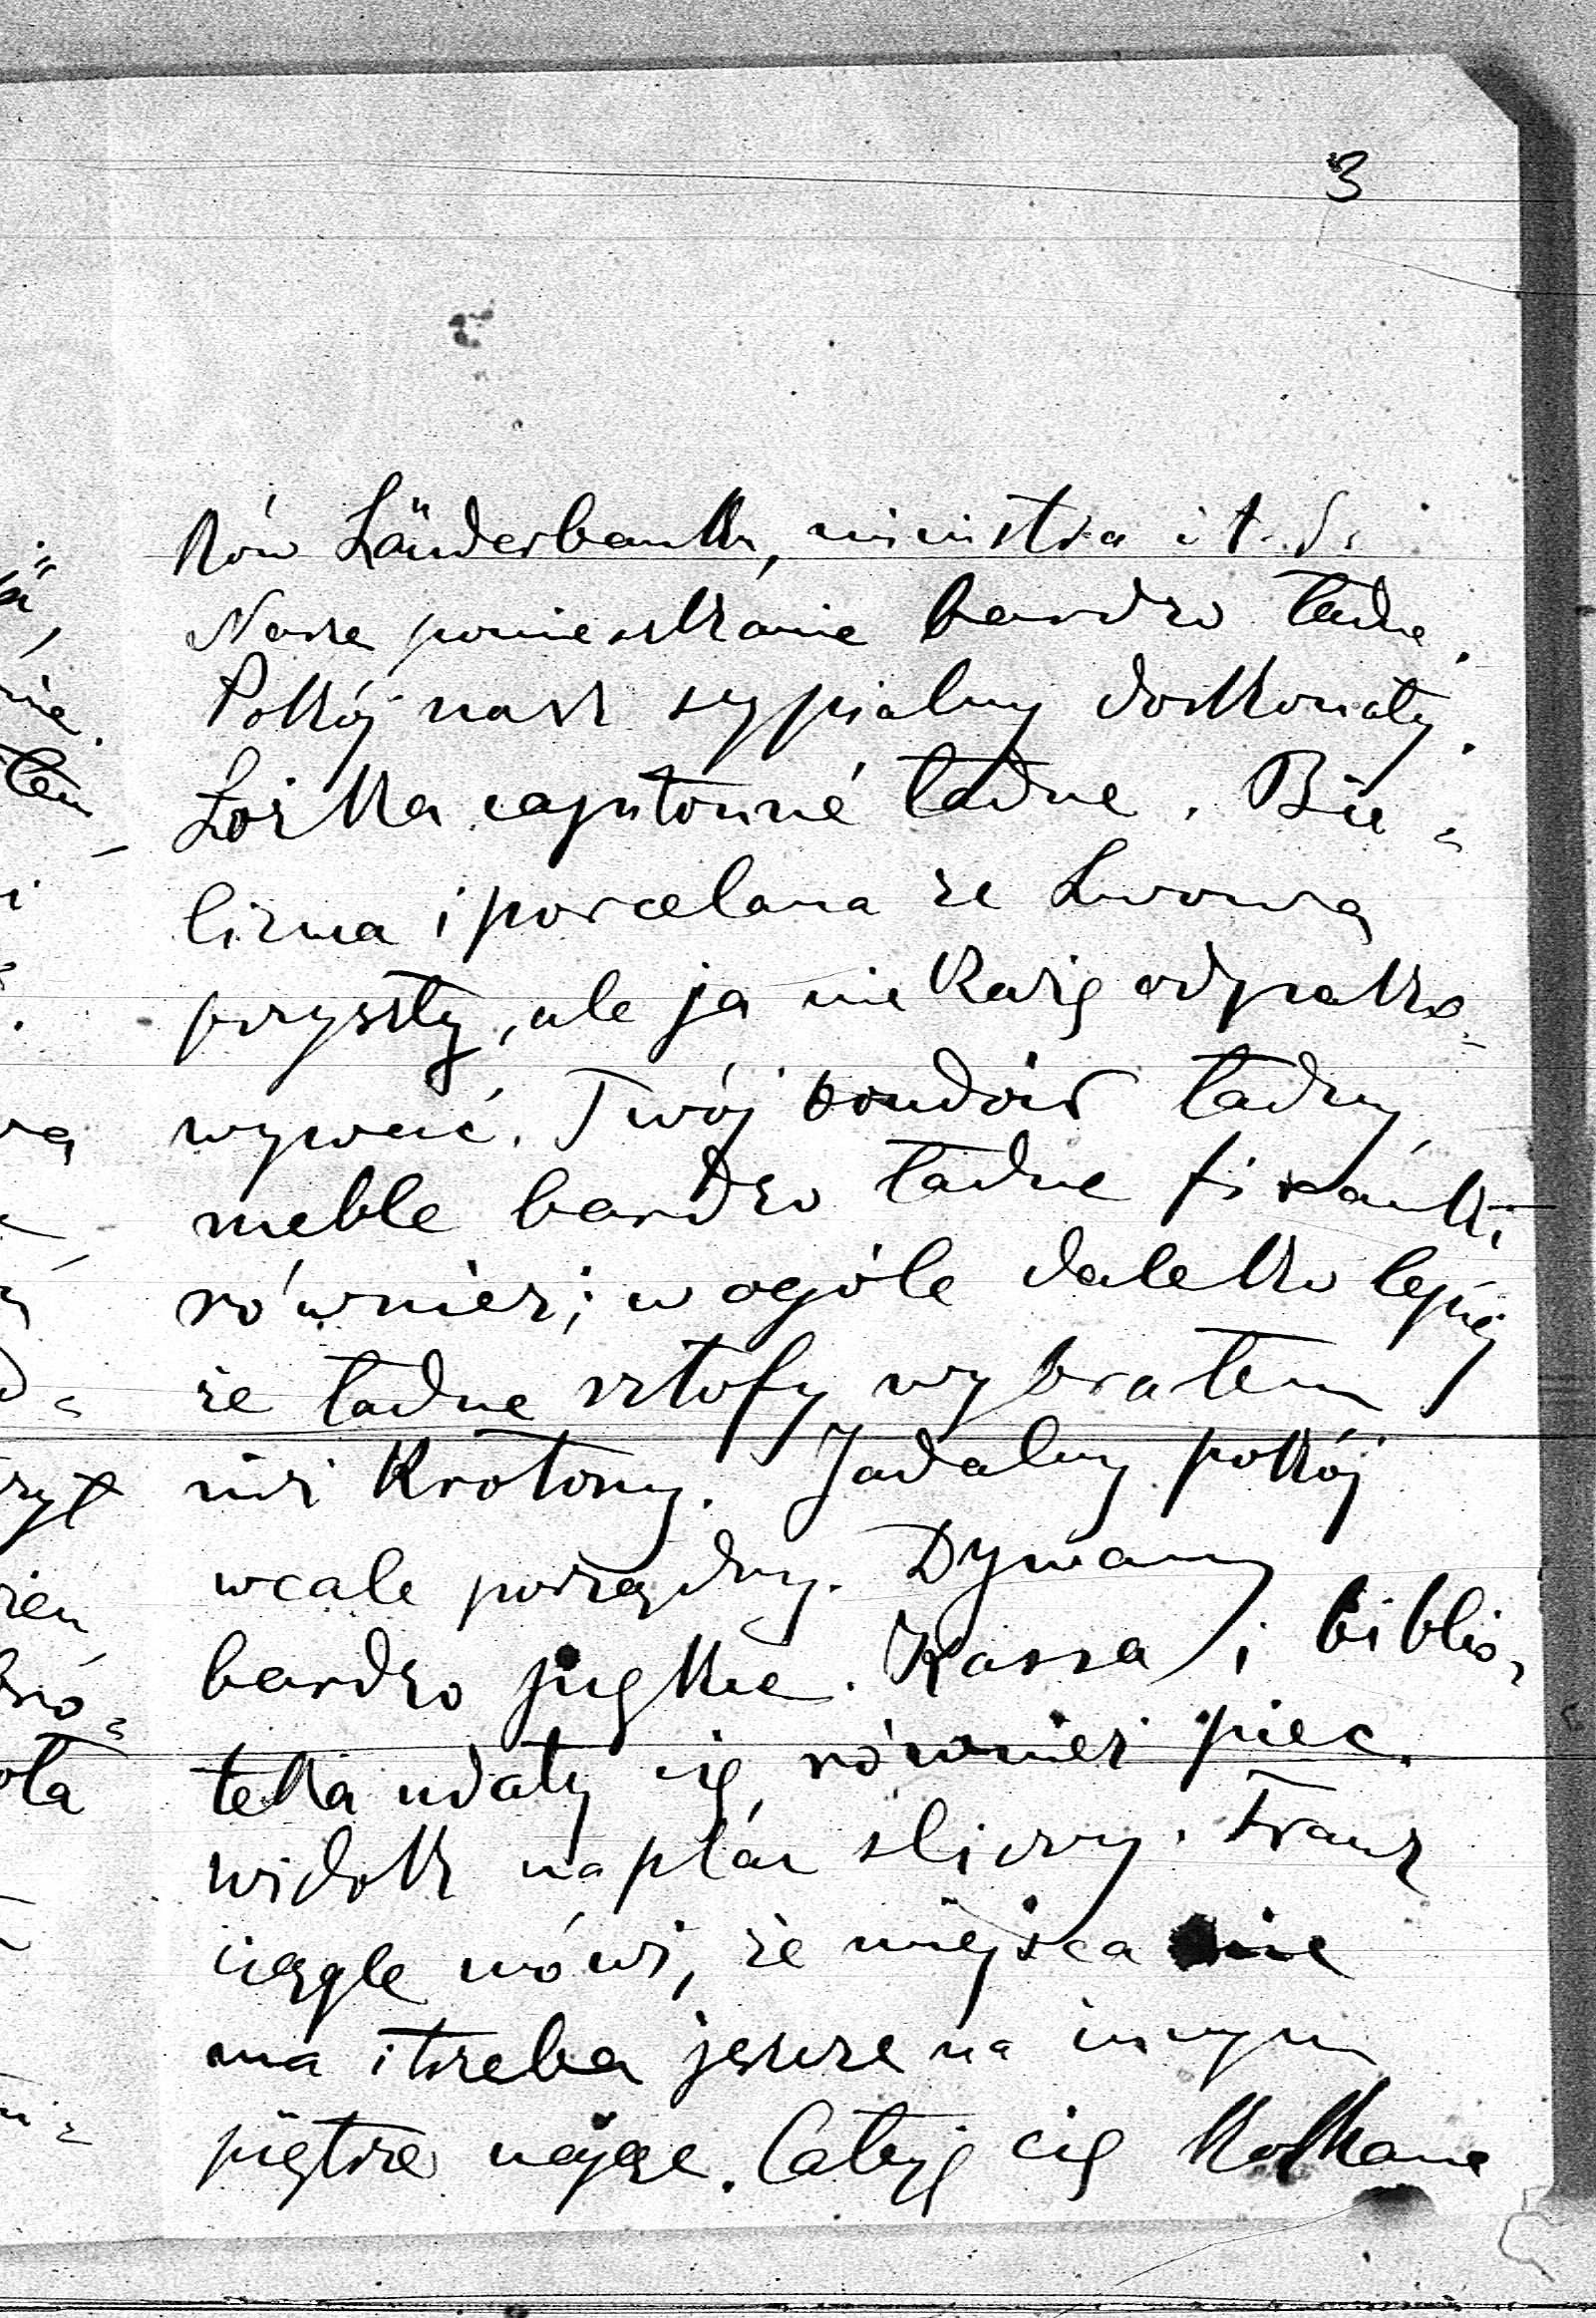 3
ków Länderbanku, ministra i t. d.
Nasze pomieszkanie bardzo ładne.
Pokój nasz sypialny doskonały.
Łóżka capitonné ładne. Bie-
lizna i porcelana ze Lwowa
przyszły, ale ja nie każę odpako-
wywać. Twój boudoir ładny,
meble bardzo ładne firanki
również; w ogóle daleko lepiej
że ładne sztofy wybrałem
niż kretony. Jadalny pokój
wcale porządny. Dywany
bardzo piękne. Kassa i biblio-
teka udały się, również piec.
widok na plac śliczny. Franz
ciągle mówi, że miejsca nie
ma i trzeba jeszcze na innym
piętrze najęże. Całuję cię kochane